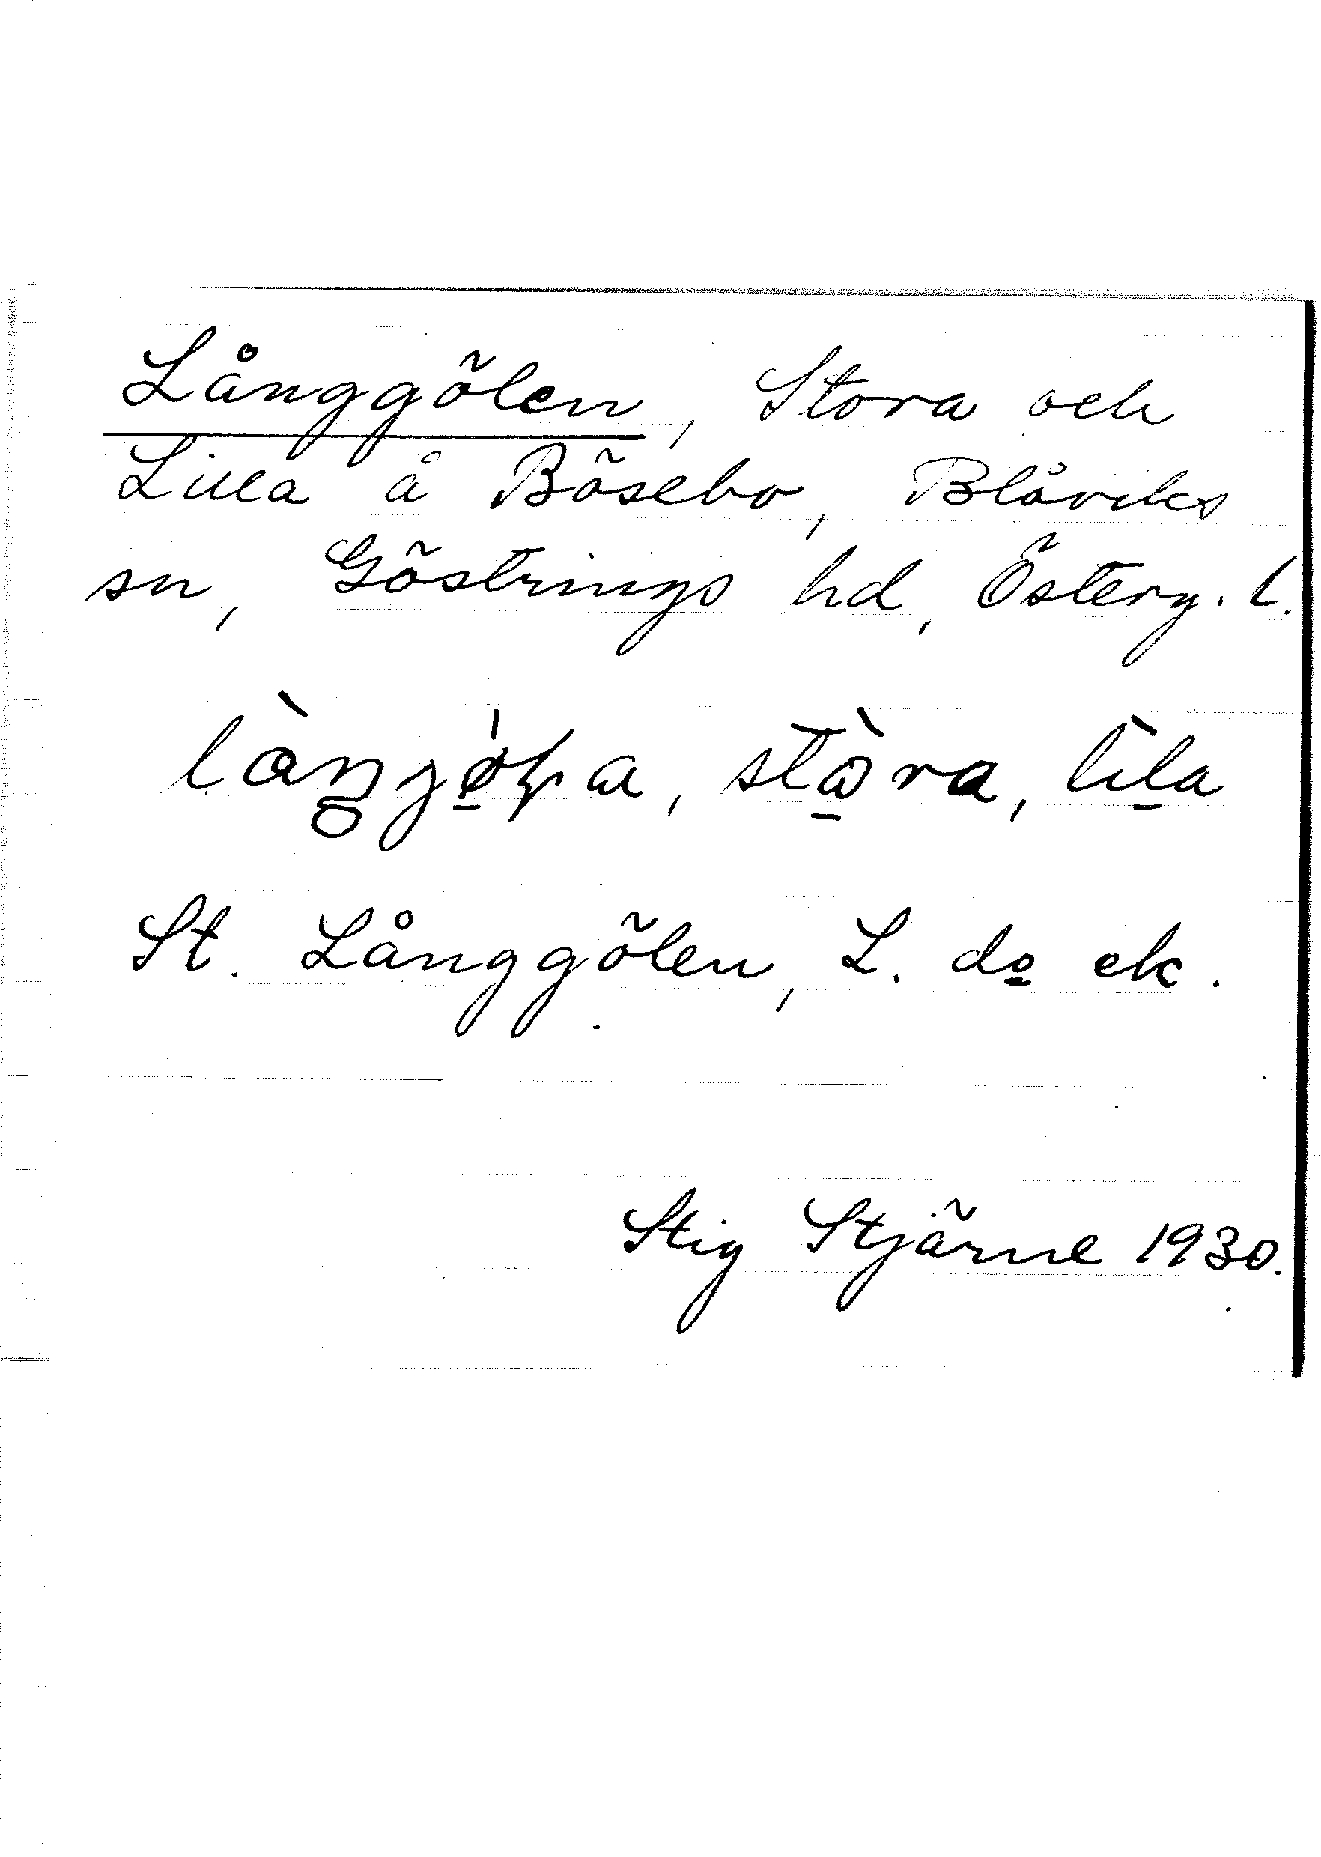 Långgölen, Stora och
Lilla å Bösebo, Blåviks
sn, Göstrings hd, Österg. l.
stora, lila
St. Långgölen, L. do ek.
Stig Stjärne 1930.